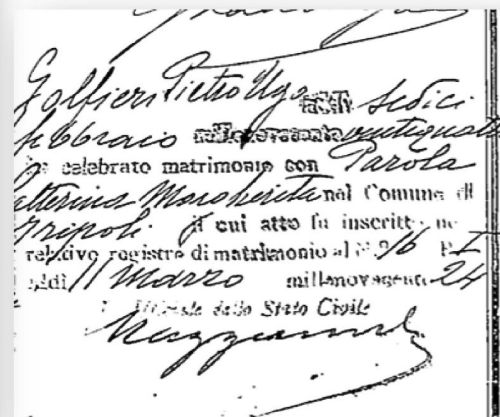 Golfieri Pietro Ugo sedici
febbraio millenovecento ventiquattro
ha celebrato matrimonio con Parola
Catterina Margherita nel Comune di
Tripoli il cui atto fu inscritto nel
relativo registro di matrimonio al N. 16 P. I
addì 11 Marzo millenovecento 24
L'Ufficiale dello Stato Civile